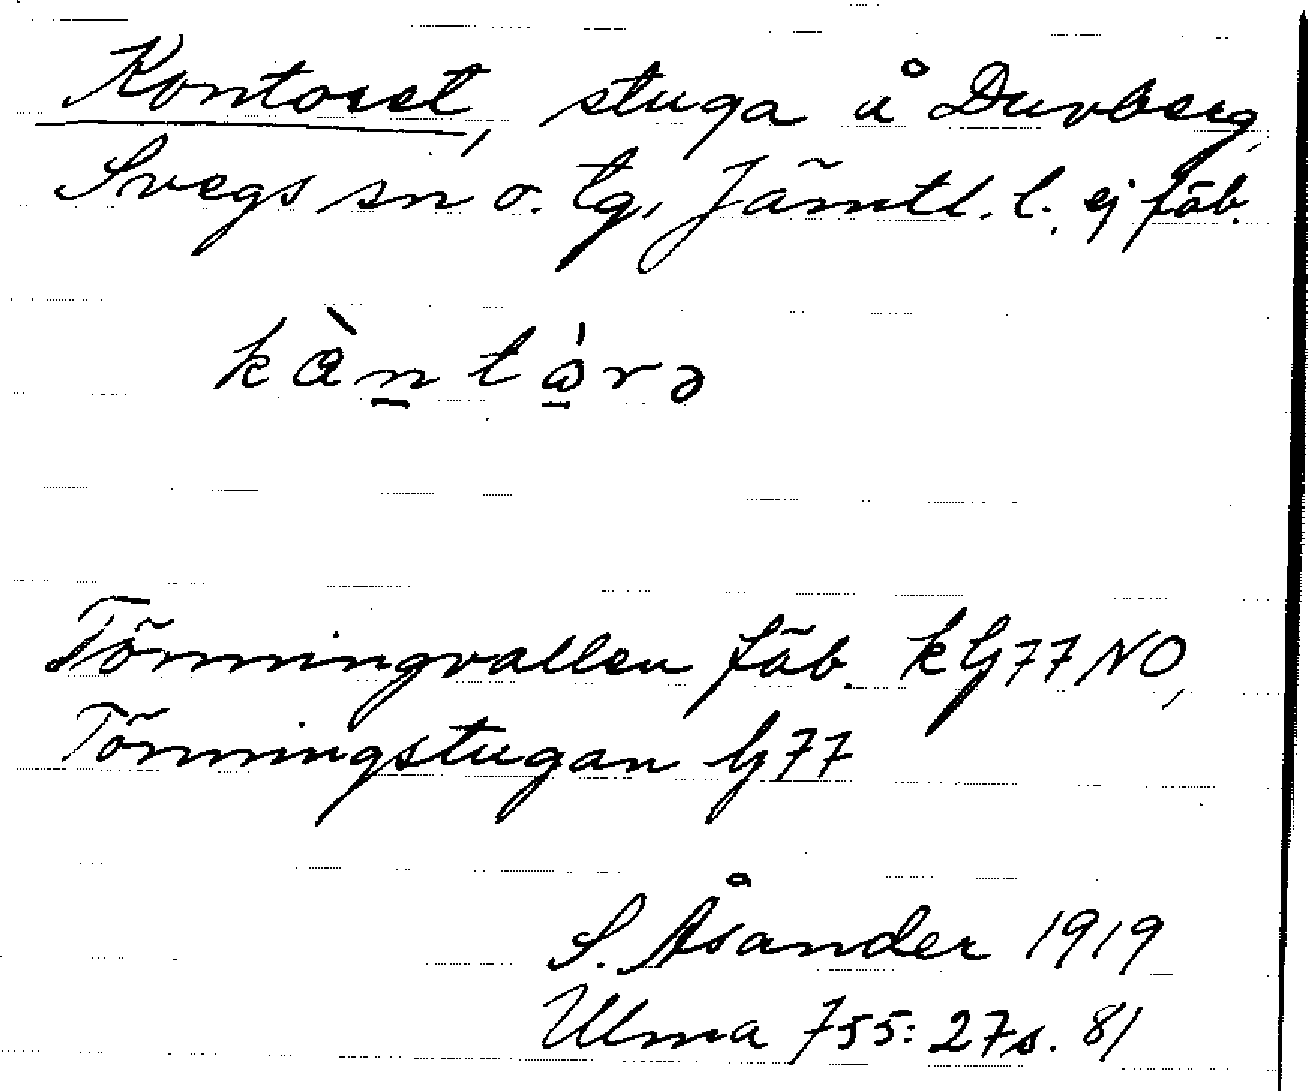 Kontoret, stuga å Duvberg,
Svegs sn o. tg, Jämtl. l., ej fäb.
kàntó̱rə
Tömmingvallen fäb. k G77 NO,
Tömmingstugan G77
S. Åsander 1919
Ulma 755:27 s. 81